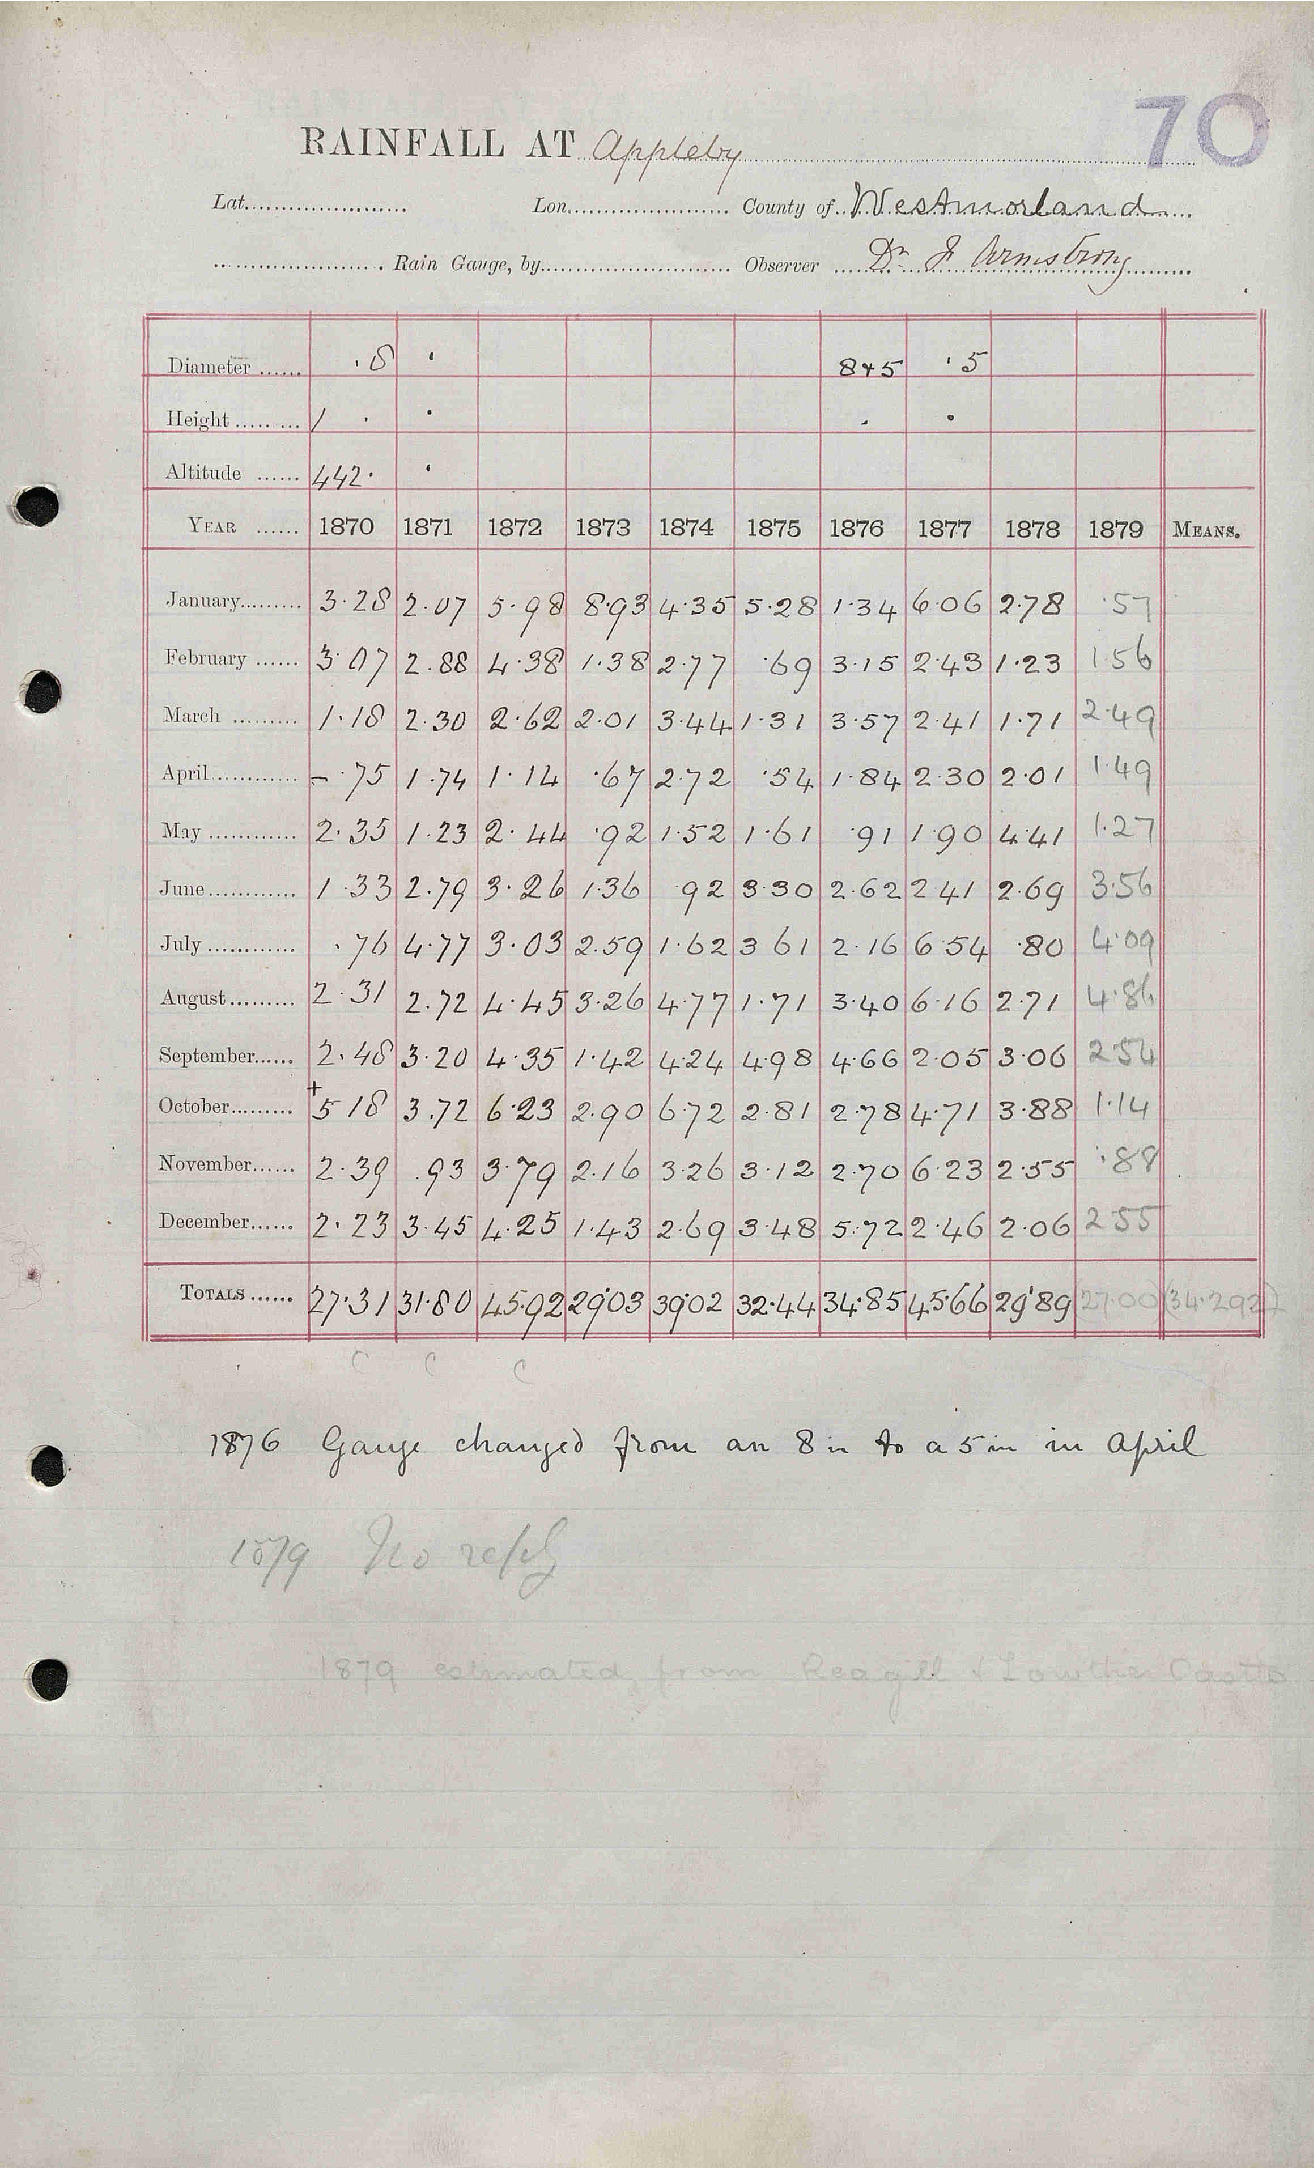 70
RAINFALL AT Appleby
Lat. Lon. County of Westmorland
Rain Gauge, by Observer Dr J Armstrong
Diameter ...... .8 · 8+5 ·5
Height ......... 1 . · . ·
Altitude ...... 442. ·
YEAR ...... 1870 1871 1872 1873 1874 1875 1876 1877 1878 1879 MEANS.
January......... 3.28 2.07 5.98 8.93 4.35 5.28 1.34 6.06 2.78 .57
February ...... 3.07 2.88 4.38 1.38 2.77 .69 3.15 2.43 1.23 1.56
March ......... 1.18 2.30 2.62 2.01 3.44 1.31 3.57 2.41 1.71 2.49
April............ – .75 1.74 1.14 .67 2.72 .54 1.84 2.30 2.01 1.49
May ............ 2.35 1.23 2.44 .92 1.52 1.61 .91 1.90 4.41 1.27
June............ 1.33 2.79 3.26 1.36 92 3.30 2.62 2.41 2.69 3.56
July ............ .76 4.77 3.03 2.59 1.62 3 61 2.16 6.54 .80 4.09
August......... 2.31 2.72 4.45 3.26 4.77 1.71 3.40 6.16 2.71 4.86
September...... 2.48 3.20 4.35 1.42 4.24 4.98 4.66 2.05 3.06 2.54
October......... + 5 18 3.72 6.23 2.90 6.72 2.81 2.78 4.71 3.88 1.14
November...... 2.39 .93 3.79 2.16 3.26 3.12 2.70 6.23 2.55 .88
December...... 2.23 3.45 4.25 1.43 2.69 3.48 5.72 2.46 2.06 2.55
TOTALS ...... 27.31 31.80 45.92 29.03 39.02 32.44 34.85 45.66 29.89 (27.00) (34.292)
C C C
1876 Gauge changed from an 8 in to a 5 in in April
1879 No reply
1879 estimated from Reagill & Lowther Castle